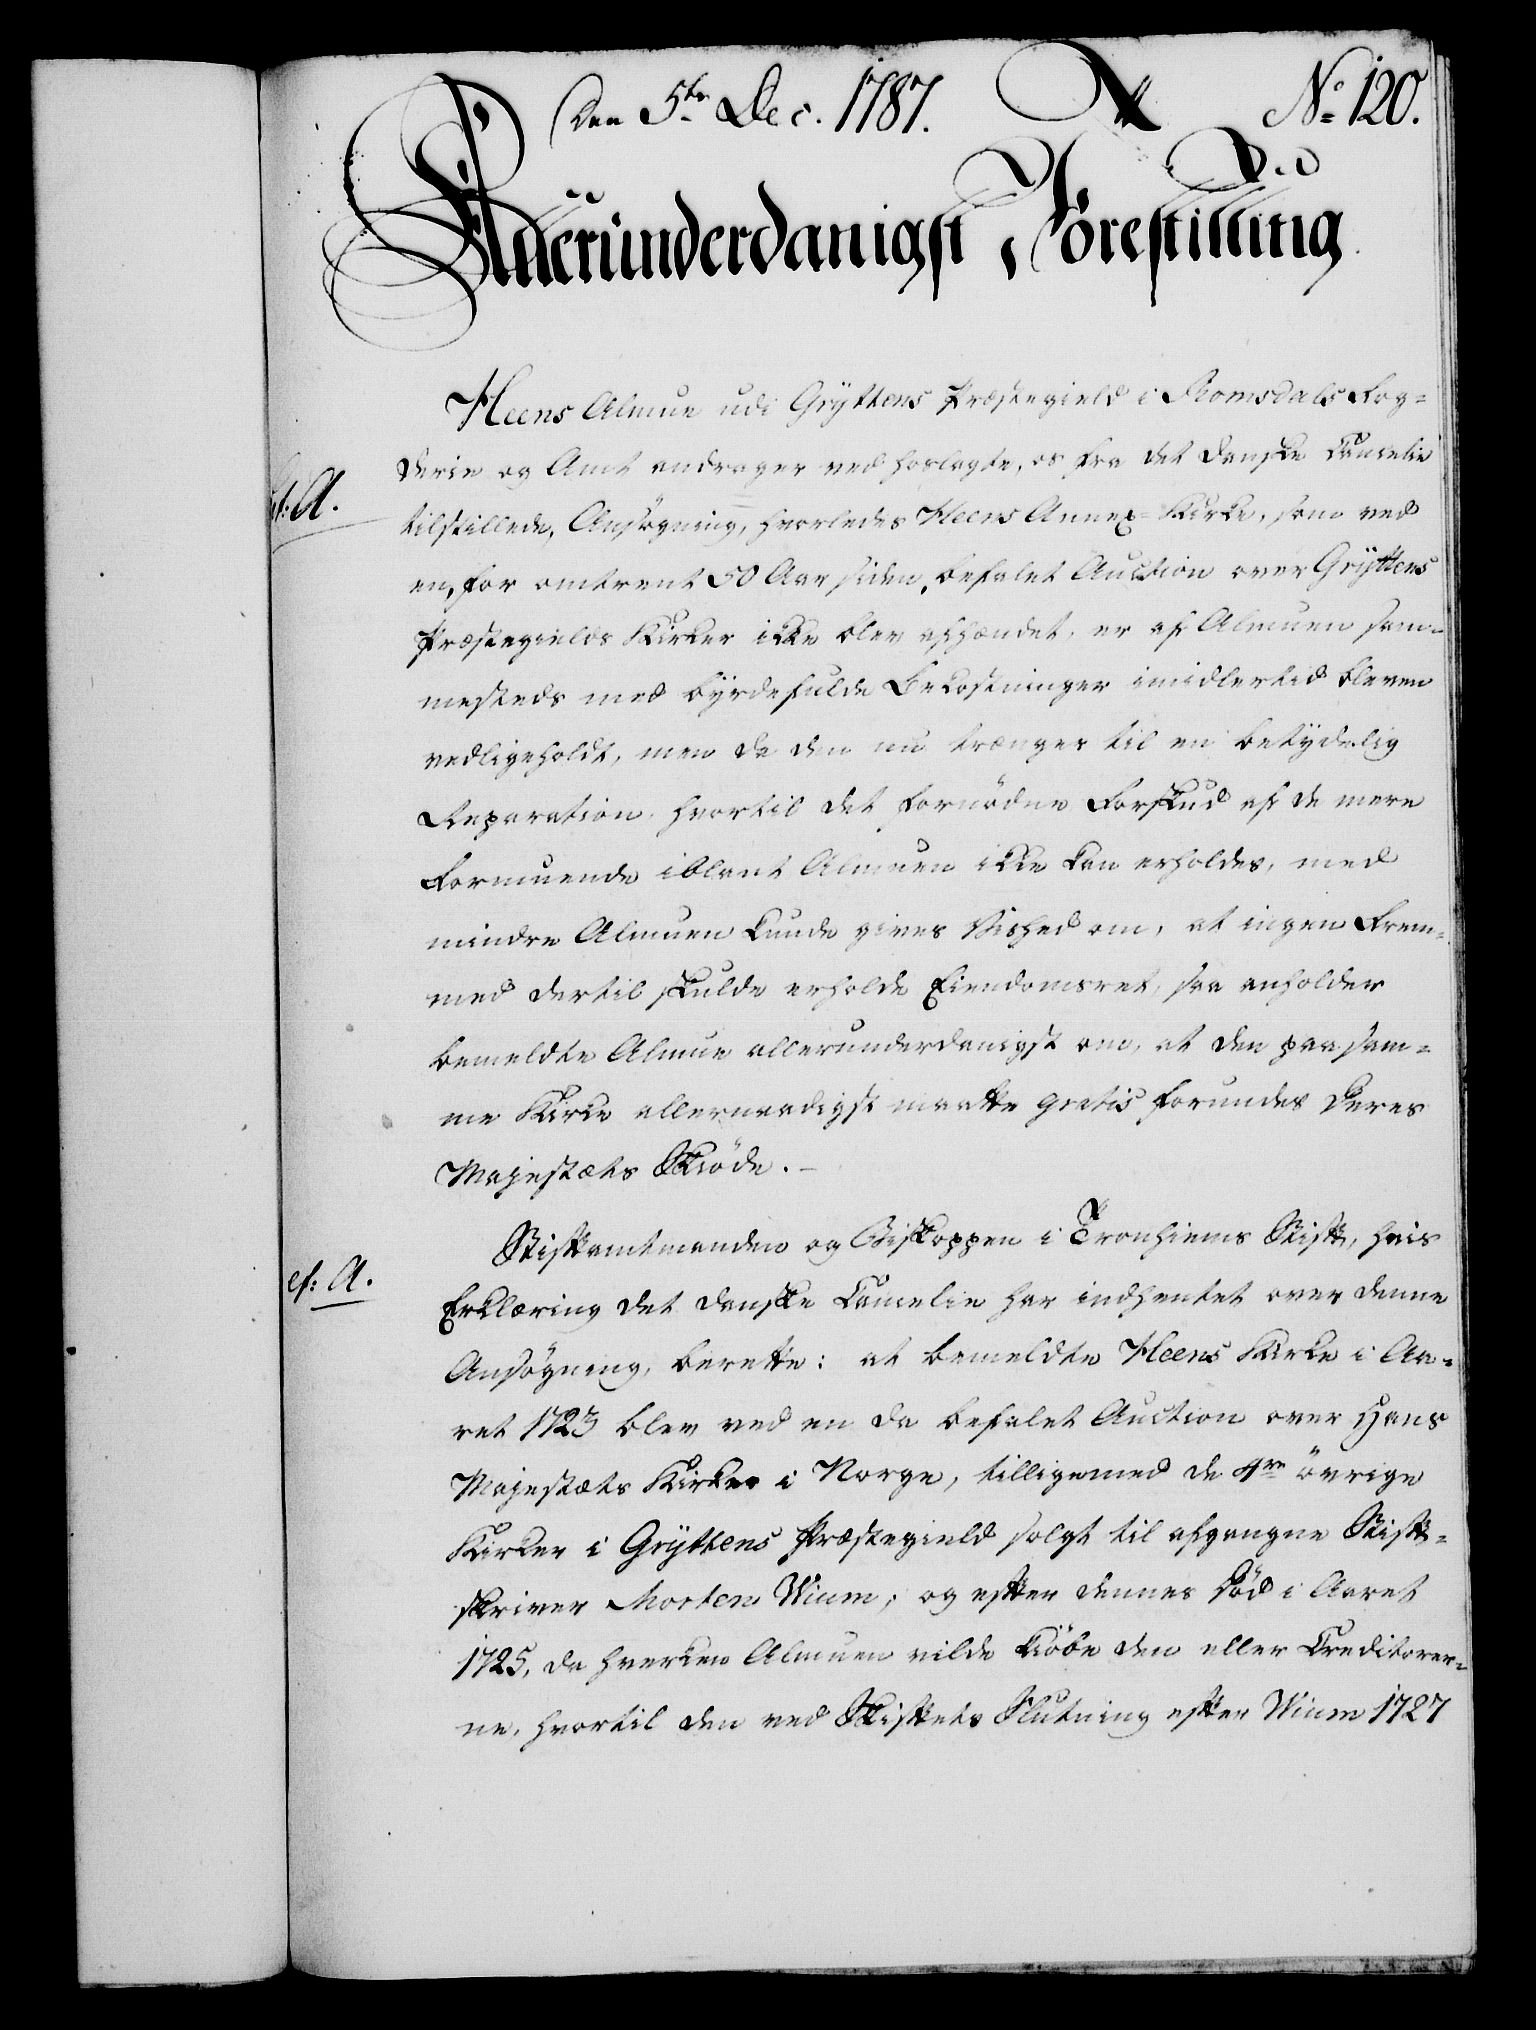 Den 5te Dec. 1787. No 120.
Alleründerdanigst Förestilling
Heens Almue udi Gryttens Præstegield i Romsdals Fog=
derie og Amt andrager ved hoslagte, os fra det danske Cancelie
cf: A.
tilstillede, Ansøgning, hvorledes Heens Annex-Kirke, som ved
en, for omtrent 50 Aar siden, befalet Auction over Gryttens
Præstegields Kirker ikke blev afhændet, er af Almuen sam=
mesteds med byrdefulde Bekostninger imidlertid bleven
vedligeholdt, men da den nu trænger til en betydelig
Reparation, hvortil det fornødne Forskud af de mere
formuende iblant Almuen ikke kan erholdes, med
mindre Almuen kunde gives Vished om, at ingen Frem=
med dertil skulde erholde Eiendomsret, saa anholder
bemeldte Almue allerunderdanigst om, at den paa sam=
me Kirke allernaadigst maatte gratis forundes Deres
Majestæts Skiøde. –
Stiftamtmanden og Biskoppen i Tronhiems Stift, hvis
cf: A.
Erklæring det danske Cancelie har indhentet over denne
Ansøgning, berette: at bemeldte Heens Kirke i Aa=
ret 1723 blev ved en da befalet Auction over Hans
Majestæts Kirker i Norge, tilligemed de 4re øvrige
Kirker i Gryttens Præstegield solgt til afgangne Stift=
skriver Morten Wium; og efter dennes Død i Aaret
1725, da hverken Almuen vilde kiøbe den eller Creditorer=
ne, hvortil den ved Skiftets Slutning efter Wium 1727